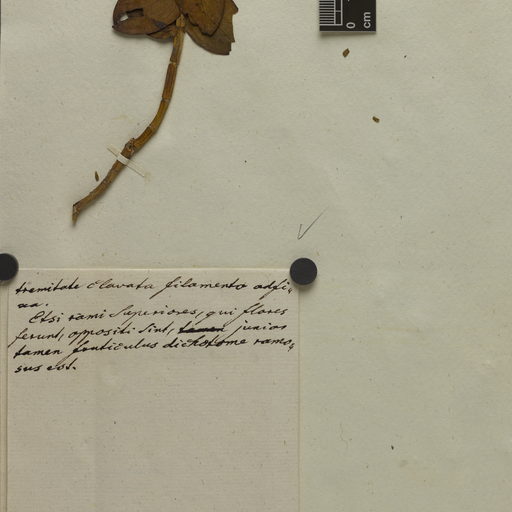 0
cm
tremitate clavata filamento adfi-
xa.
Etsi rami Superiores, qui flores
ferunt, oppositi sint, tamen junior
tamen fruticulus dichotome ramo-
sus est.